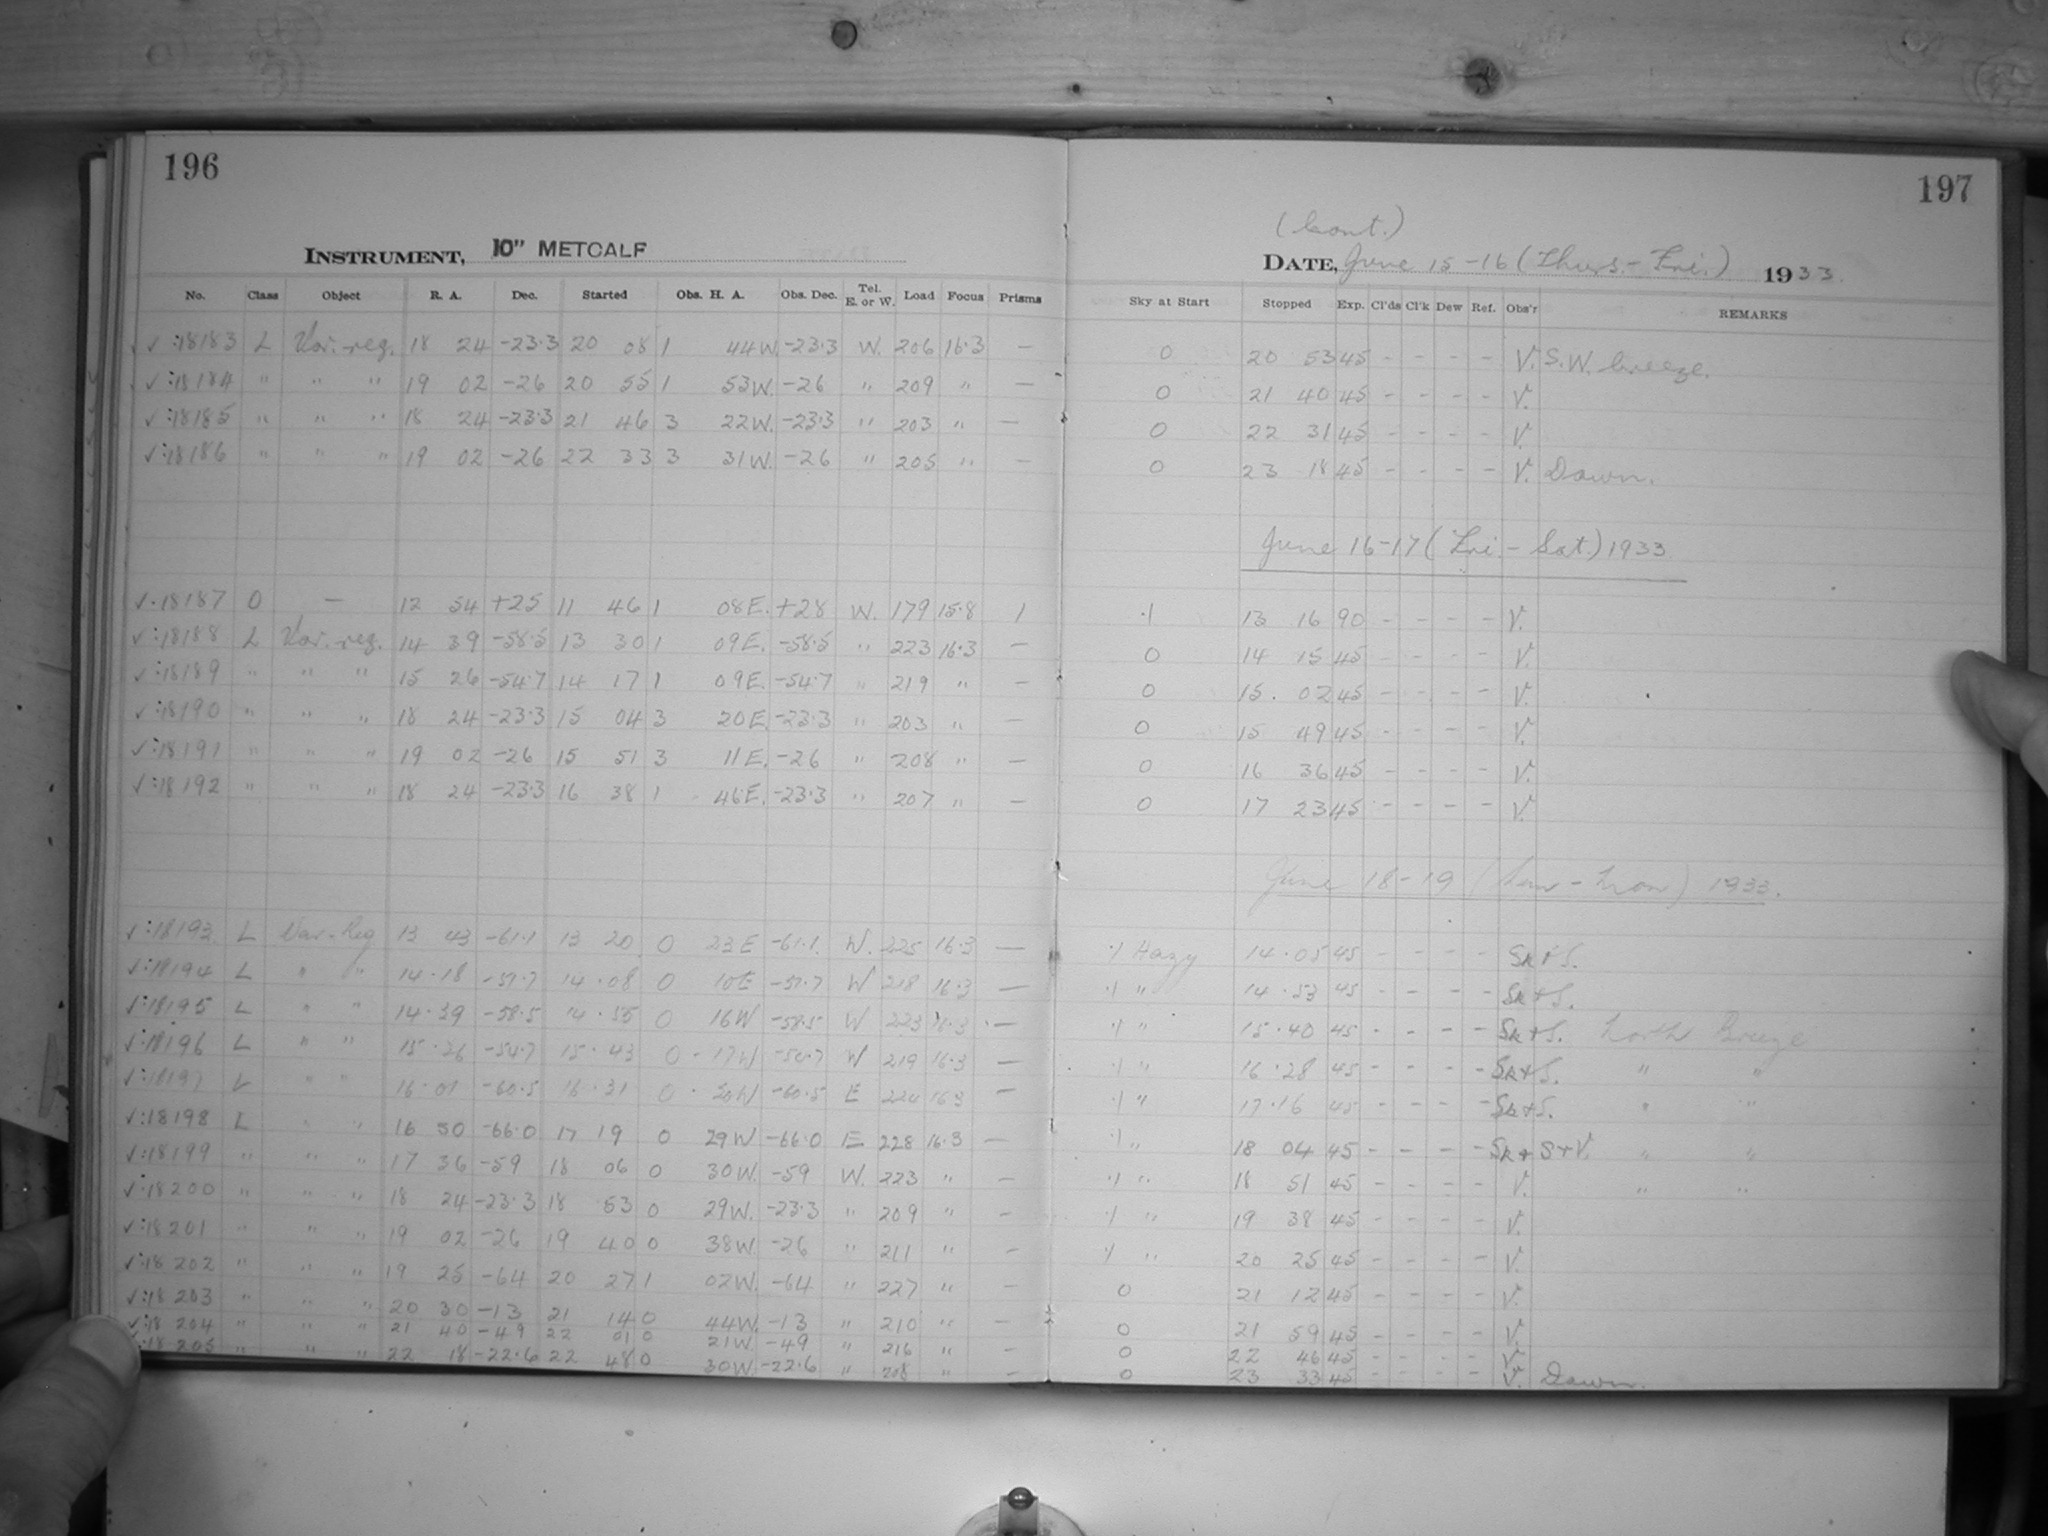 196
197
(Cont.)
INSTRUMENT, 10" METCALF
DATE, June 15-16 (Thurs.-Fri.) 1933.
No. Class Object R. A. Dec. Started Obs. H. A. Obs. Dec. Tel. E. or W. Load Focus Prisms Sky at Start Stopped Exp. Cl'ds Cl'k Dew Ref. Obs'r REMARKS
√:18183 L Var.-reg. 18 24 -23.3 20 08 1 44W. -23.3 W. 206 16.3 — 0 20 53 45 - - - - V. S.W. breeze.
√:18184 " " " 19 02 -26 20 55 1 53W. -26 " 209 " — 0 21 40 45 - - - - V.
√:18185 " " " 18 24 -23.3 21 46 3 22W. -23.3 " 203 " — 0 22 31 45 - - - - V.
√:18186 " " " 19 02 -26 22 33 3 31W. -26 " 205 " — 0 23 18 45 - - - - V. Dawn.
June 16-17 (Fri.-Sat.) 1933
√.18187 O — 12 54 +25 11 46 1 08E. +28 W. 179 15.8 1 .1 13 16 90 - - - - V.
√:18188 L Var.-reg. 14 39 -58.5 13 30 1 09E. -58.5 " 223 16.3 — 0 14 15 45 - - - - V.
√:18189 " " " 15 26 -54.7 14 17 1 09E. -54.7 " 219 " — 0 15. 02 45 - - - - V.
√:18190 " " " 18 24 -23.3 15 04 3 20E. -23.3 " 203 " — 0 15 49 45 - - - - V.
√:18191 " " " 19 02 -26 15 51 3 11E. -26 " 208 " — 0 16 36 45 - - - - V.
√:18192 " " " 18 24 -23.3 16 38 1 46E. -23.3 " 207 " — 0 17 23 45 - - - - V.
June 18-19 (Sun-Mon) 1933.
√:18193 L Var-Reg 13 43 -61.1 13 20 0 23E -61.1. W. 225 16.3 — .1 Hazy 14.05 45 - - - - SR+S.
√:18194 L " " 14.18 -57.7 14.08 0 10E -57.7 W 218 16.3 — .1 " 14.53 45 - - - - SR+S.
√:18195 L " " 14.39 -58.5 14.55 0 16W -58.5 W 223 16.3 — .1 " 15.40 45 - - - - SR+S. North Breeze
√:18196 L " " 15.26 -54.7 15.43 0 17W -54.7 W 219 16.3 — .1 " 16.28 45 - - - - SR+S. " "
√:18197 L " " 16.01 -60.5 16.31 0 30W -60.5 E 224 16.3 — .1 " 17.16 45 - - - - SR+S. " "
√:18198 L " " 16 50 -66.0 17 19 0 29W -66.0 E 228 16.3 — .1 " 18 04 45 - - - - SR+S+V. " "
√:18199 " " " 17 36 -59 18 06 0 30W. -59 W. 223 " — .1 " 18 51 45 - - - - V. " "
√:18200 " " " 18 24 -23.3 18 53 0 29W. -23.3 " 209 " — .1 " 19 38 45 - - - - V.
√:18201 " " " 19 02 -26 19 40 0 38W. -26 " 211 " — .1 " 20 25 45 - - - - V.
√:18202 " " " 19 25 -64 20 27 1 02W. -64 " 227 " — 0 21 12 45 - - - - V.
√:18203 " " " 20 30 -13 21 14 0 44W. -13 " 210 " — 0 21 59 45 - - - - V.
√:18204 " " " 21 40 -49 22 01 0 21W. -49 " 216 " — 0 22 46 45 - - - - V.
√:18205 " " " 22 18 -22.6 22 48 0 30W. -22.6 " 208 " — 0 23 33 45 - - - - V. Dawn.